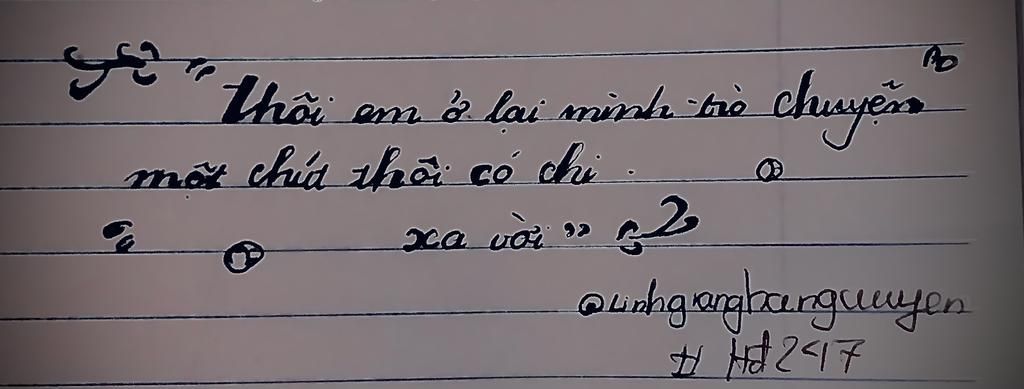 "Thôi em ở lại mình trò chuyện
một chút thôi có chi
xa vời"